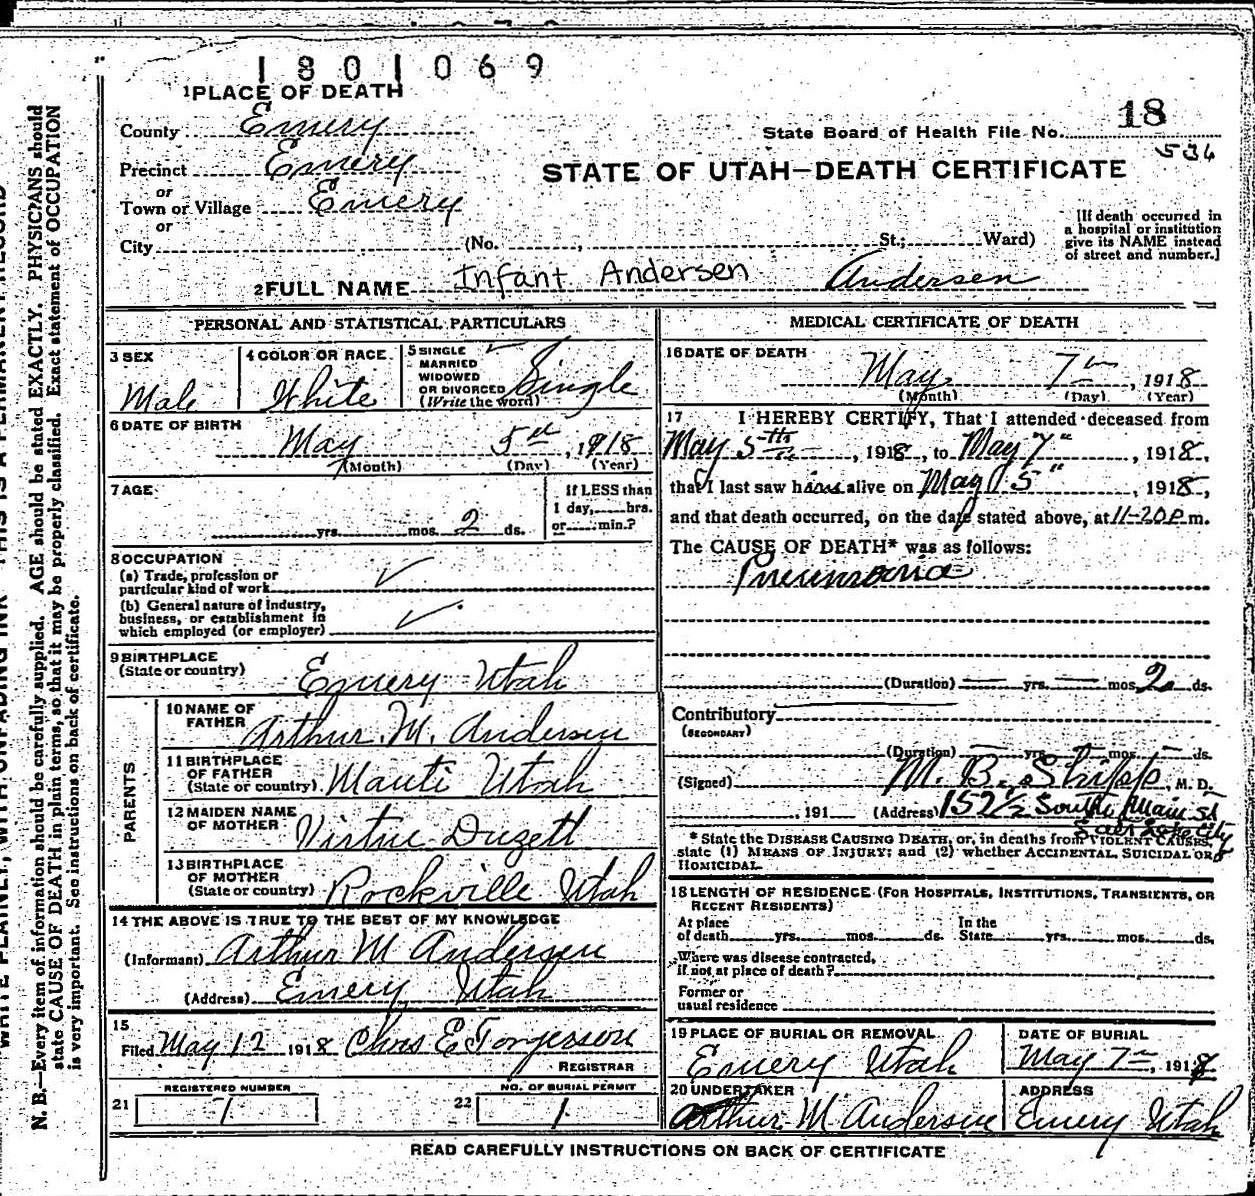 1801069
1 PLACE OF DEATH
County Emery
Precinct Emery
or
Town or Village Emery
or
City (No. , St.; Ward)
State Board of Health File No. 18
536
STATE OF UTAH—DEATH CERTIFICATE
[If death occurred in
a hospital or institution
give its NAME instead
of street and number.]
2 FULL NAME Infant Andersen Andersen
PERSONAL AND STATISTICAL PARTICULARS
3 SEX
Male
4 COLOR OR RACE
White
5 SINGLE
MARRIED
WIDOWED
OR DIVORCED
(Write the word)
Single
6 DATE OF BIRTH
May 5th, 1918
(Month) (Day) (Year)
7 AGE
yrs. mos. 2 ds.
If LESS than
1 day, hrs.
or min.?
8 OCCUPATION
(a) Trade, profession or
particular kind of work
(b) General nature of industry,
business, or establishment in
which employed (or employer)
9 BIRTHPLACE
(State or country)
Emery Utah
PARENTS
10 NAME OF
FATHER
Arthur M. Andersen
11 BIRTHPLACE
OF FATHER
(State or country)
Manti Utah
12 MAIDEN NAME
OF MOTHER
Virtue Duzett
13 BIRTHPLACE
OF MOTHER
(State or country)
Rockville Utah
14 THE ABOVE IS TRUE TO THE BEST OF MY KNOWLEDGE
(Informant) Arthur M Andersen
(Address) Emery, Utah
15
Filed May 12 1918 Chris E Torgerson
REGISTRAR
REGISTERED NUMBER
21 7
NO. OF BURIAL PERMIT
22 1
MEDICAL CERTIFICATE OF DEATH
16 DATE OF DEATH
May 7th, 1918
(Month) (Day) (Year)
17 I HEREBY CERTIFY, That I attended deceased from
May 5th, 1918, to May 7", 1918,
that I last saw him alive on May 5", 1918,
and that death occurred, on the date stated above, at 11-20 P.m.
The CAUSE OF DEATH* was as follows:
Pneumonia
(Duration) — yrs. — mos. 2 ds.
Contributory
(SECONDARY)
(Duration) — yrs. — mos. — ds.
(Signed) M. B. Shipp, M. D.
, 191 (Address) 152½ South Main St
Salt Lake City
* State the DISEASE CAUSING DEATH, or, in deaths from VIOLENT CAUSES,
state (1) MEANS OF INJURY; and (2) whether ACCIDENTAL, SUICIDAL OR
HOMICIDAL
18 LENGTH OF RESIDENCE (FOR HOSPITALS, INSTITUTIONS, TRANSIENTS, OR
RECENT RESIDENTS)
At place
of death yrs. mos. ds.
In the
State yrs. mos. ds.
Where was disease contracted,
if not at place of death?
Former or
usual residence
19 PLACE OF BURIAL OR REMOVAL
Emery Utah
DATE OF BURIAL
May 7th, 1918
20 UNDERTAKER
Arthur M Andersen
ADDRESS
Emery Utah
READ CAREFULLY INSTRUCTIONS ON BACK OF CERTIFICATE
WRITE PLAINLY, WITH UNFADING INK—THIS IS A PERMANENT RECORD
N. B.—Every item of information should be carefully supplied. AGE should be stated EXACTLY. PHYSICIANS should
state CAUSE OF DEATH in plain terms, so that it may be properly classified. Exact statement of OCCUPATION
is very important. See instructions on back of certificate.